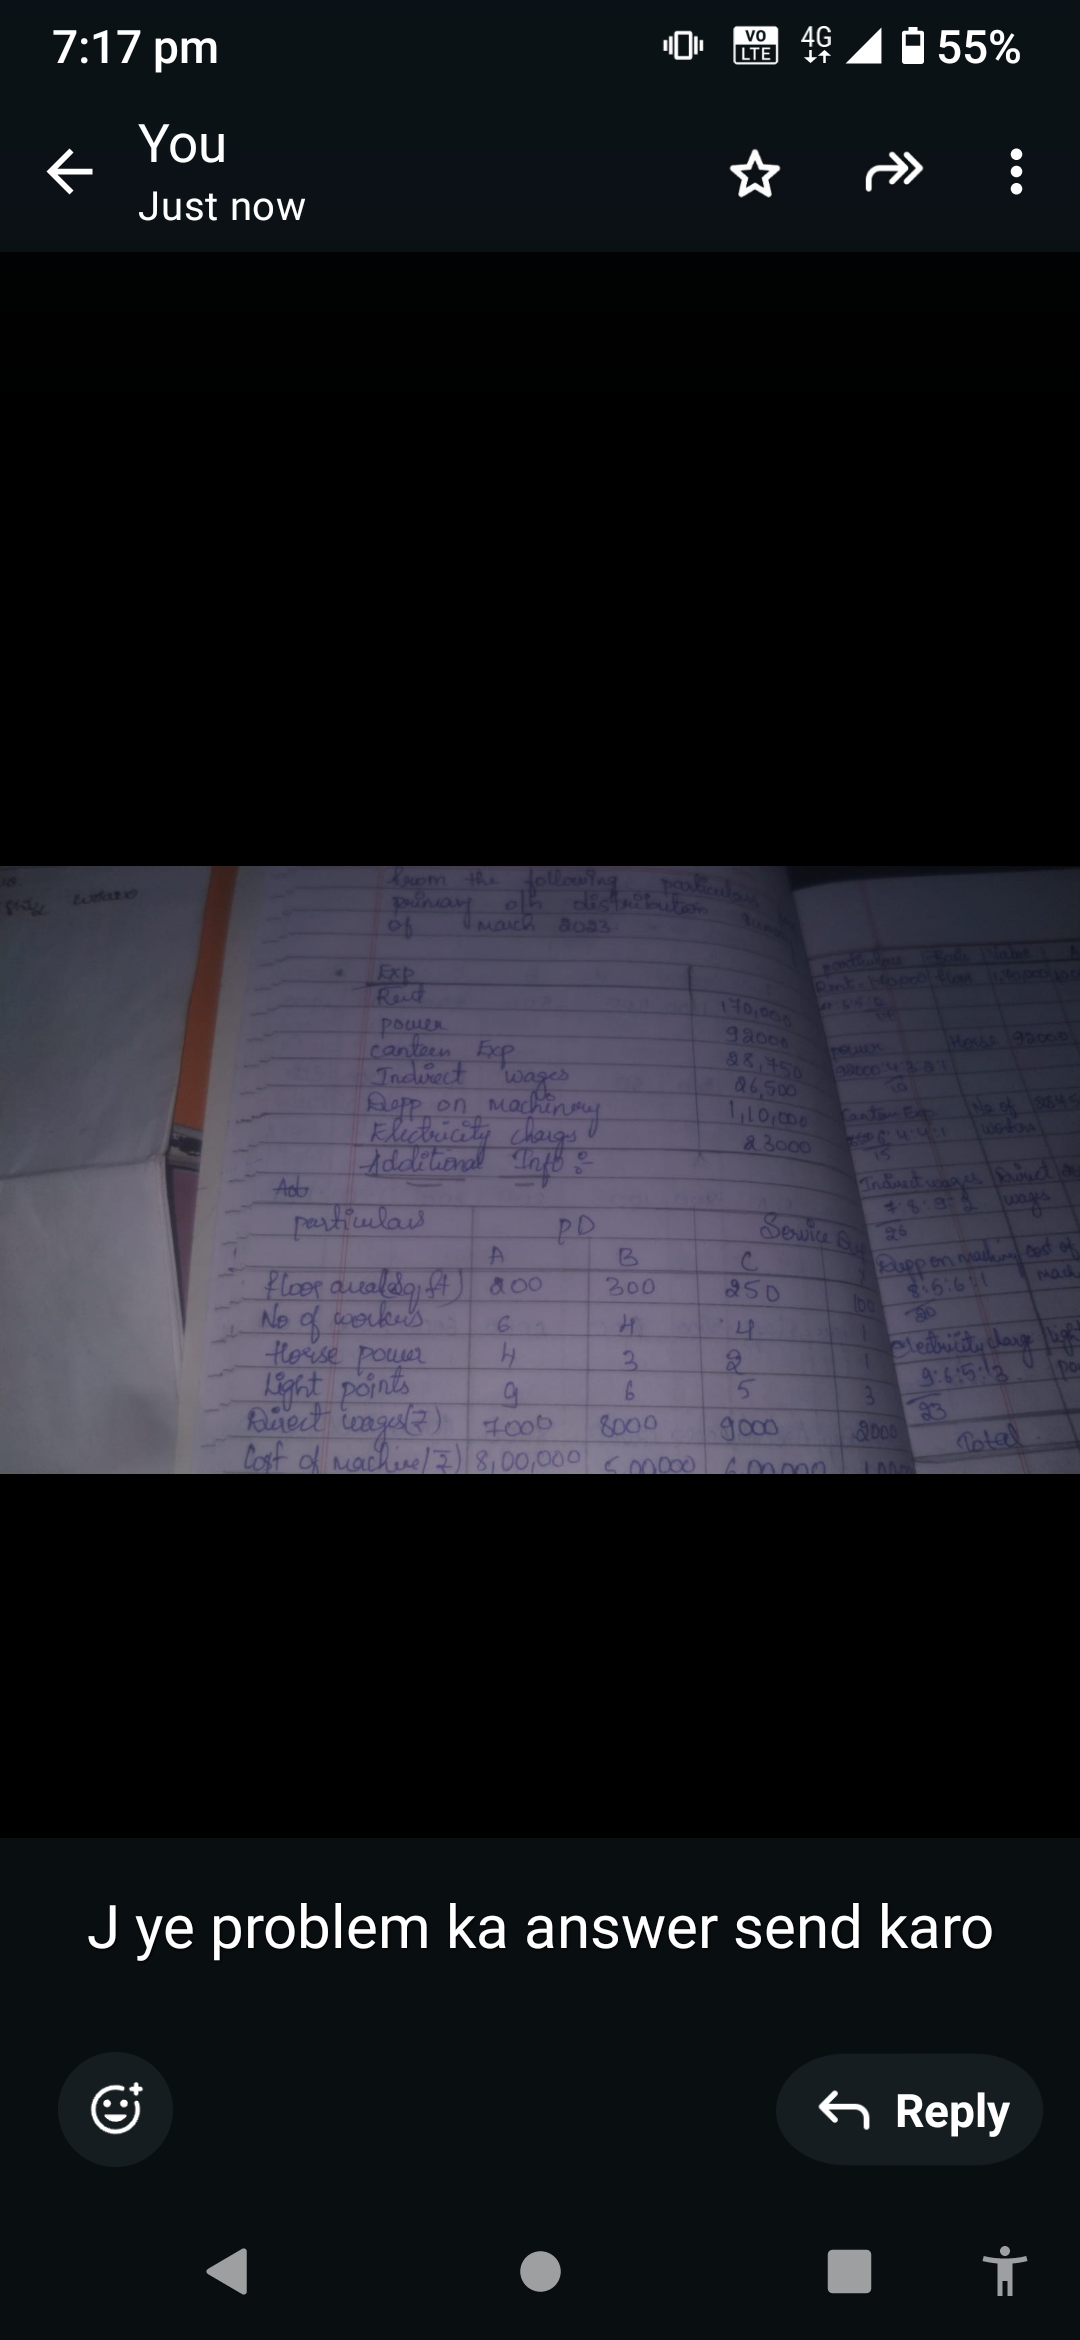 7:17 pm
VO LTE 4G 55%
You
Just now
from the following particulars
primary o/h distribution
of march 2023
Exp
Rent 170,000
power 92000
canteen Exp 28,750
Indirect wages 26,500
Depp on machinery 1,10,000
Electricity charges 23000
Additional Info :-
particulars PD Service
A B C
floor area(sq.ft) 200 300 250 100
No of workers 6 4 4 1
Horse power 4 3 2 1
Light points 9 6 5 3
Direct wages(₹) 7000 8000 9000 2000
Cost of machine(₹) 8,00,000
particulars Basis Value
Rent floor
power Horse 92000
Canteen Exp No of
15 workers
Indirect wages Direct
7:8:9:2 wages
26
Depp on machinery cost of
8:5:6:1 mach
20
Electricity charge light
9:6:5:3
23
Total
J ye problem ka answer send karo
Reply